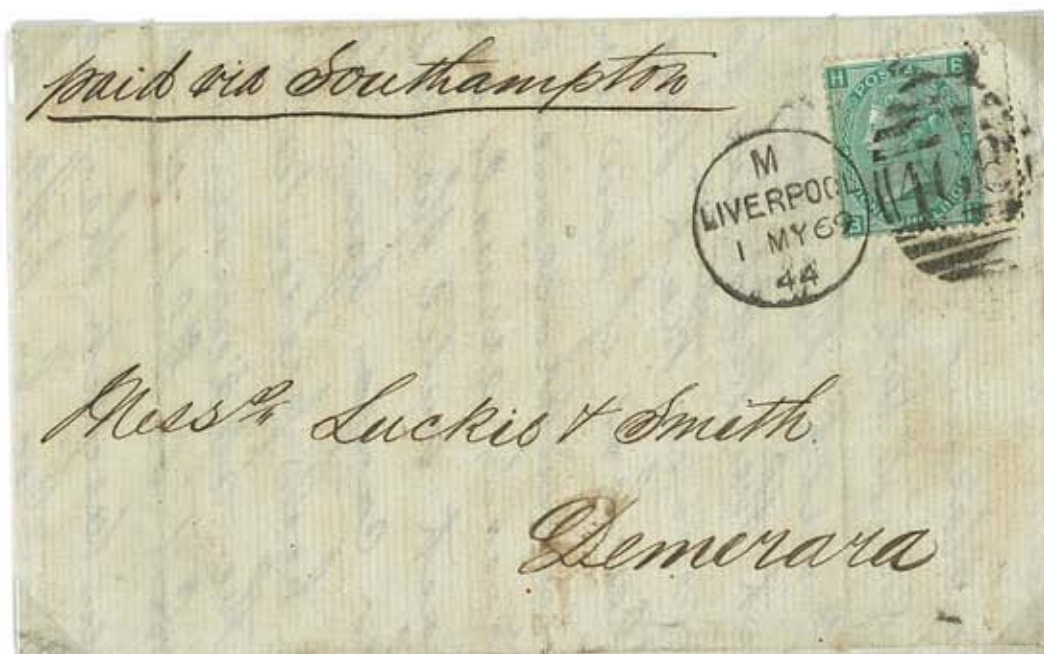 paid via Southampton
H E
POSTAGE
M
LIVERPOOL
1 MY 69
44
466
Mess.rs Luckie & Smith.
Demerara